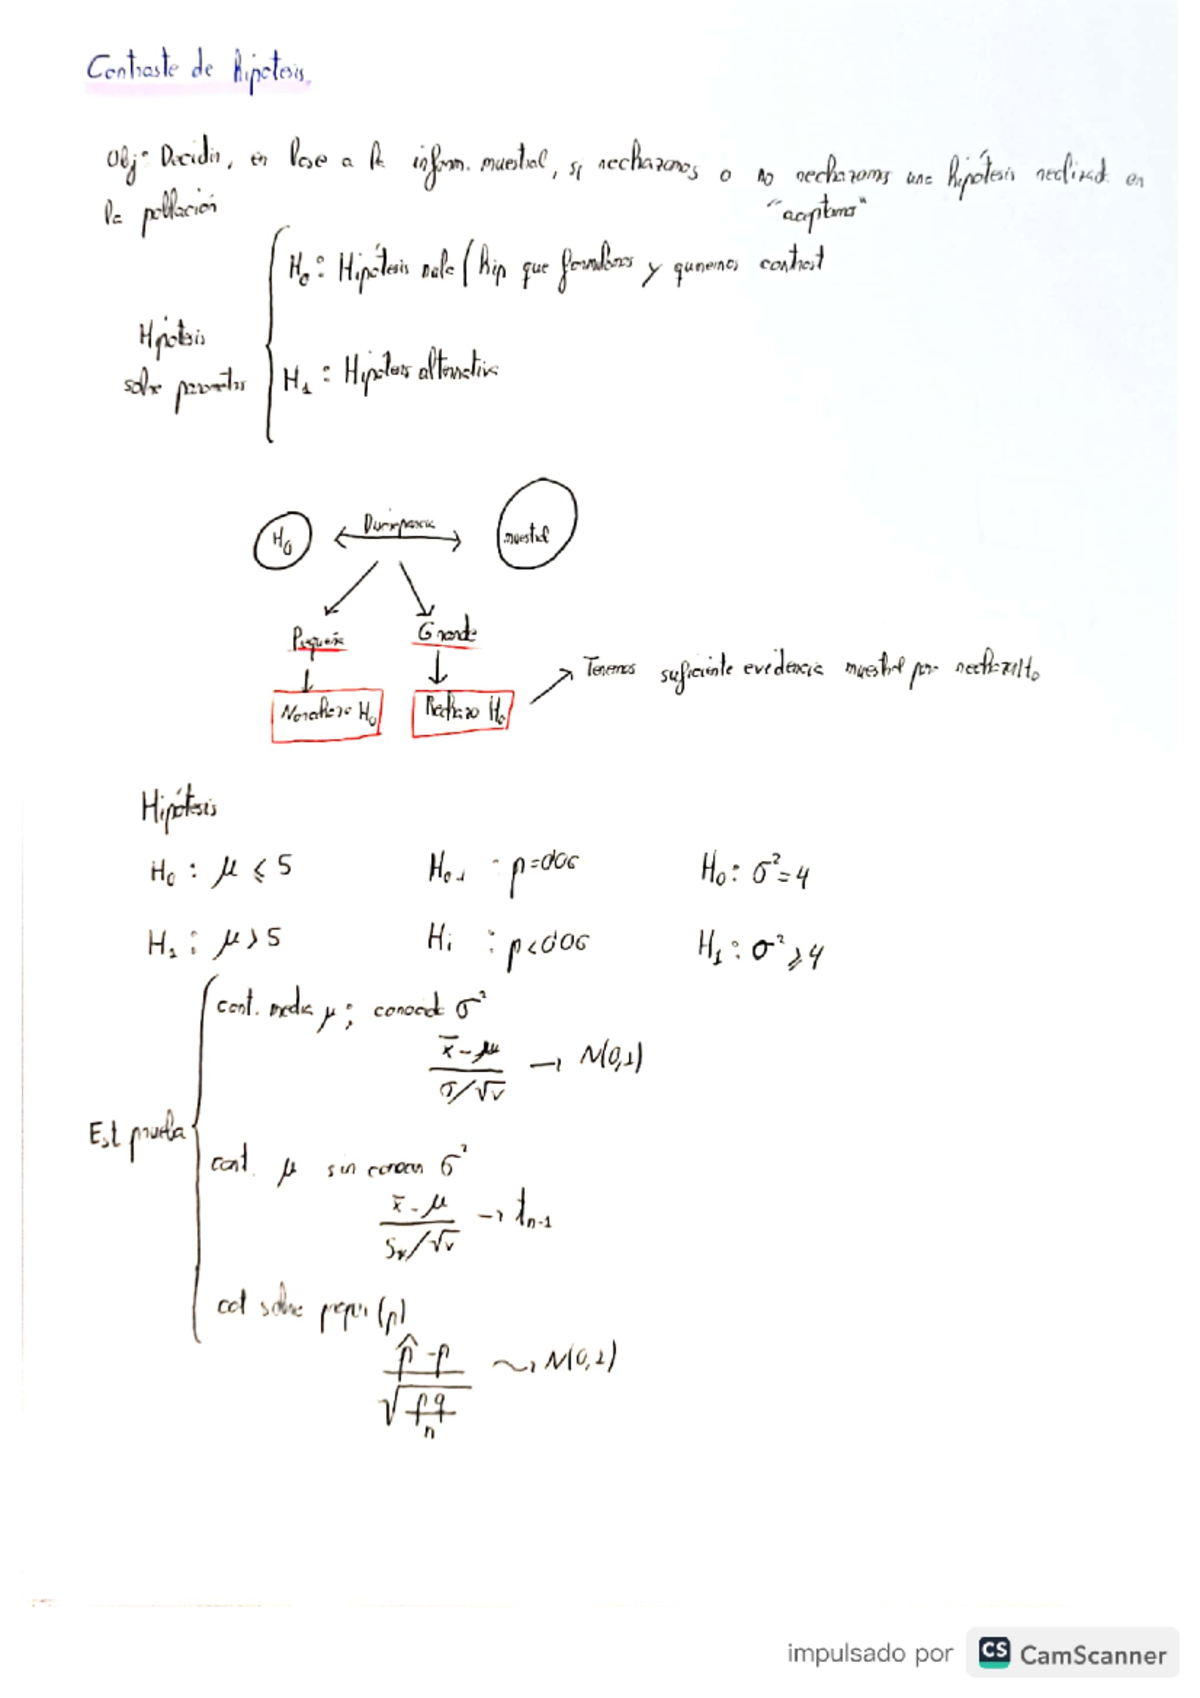 Contraste de hipótesis.
Obj: Decidir, en base a la inform. muestral, si rechazamos o no rechazamos una hipótesis realizad. en
"aceptamos"
la población
H₀ : Hipótesis nula (hip que formulamos y queremos contrast
Hipótesis
sobre parametros
H₁ : Hipótesis alternativa
H₀
Discrepancia
muestral
Pequeña
Grande
No rechazo H₀
Rechazo H₀
Tenemos suficiente evidencia muestral para rechazarlo
Hipótesis
H₀ : μ ⩽ 5
H₀ : p=0'06
H₀ : σ²=4
H₁ : μ > 5
H₁ : p<0'06
H₁ : σ² ⩾ 4
cont. media μ ; conocida σ²
x̄-μ / σ/√n → N(0,1)
Est prueba
cont. μ sin conocer σ²
x̄-μ / Sx/√n → tn-1
cot sobre propor (p)
p̂-p / √pq/n ⇝ N(0,1)
impulsado por CS CamScanner